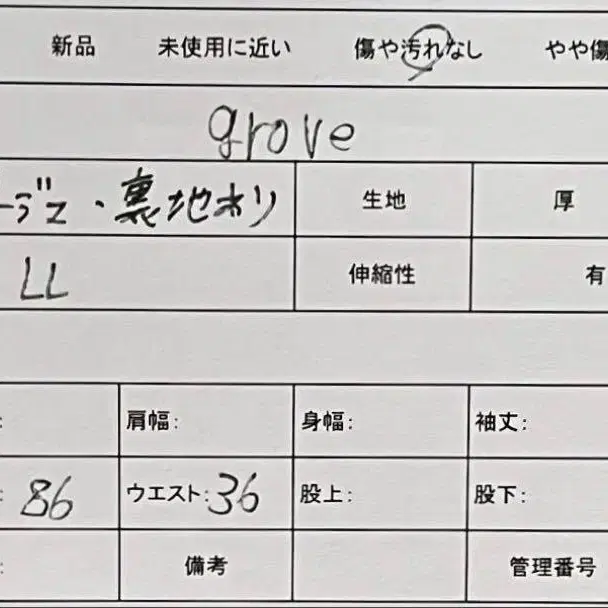 新品 未使用に近い 傷や汚れなし やや傷
grove
ーデュ・裏地ホリ 生地 厚
LL 伸縮性 有
: 肩幅: 身幅: 袖丈:
: 86 ウエスト: 36 股上: 股下:
: 備考 管理番号